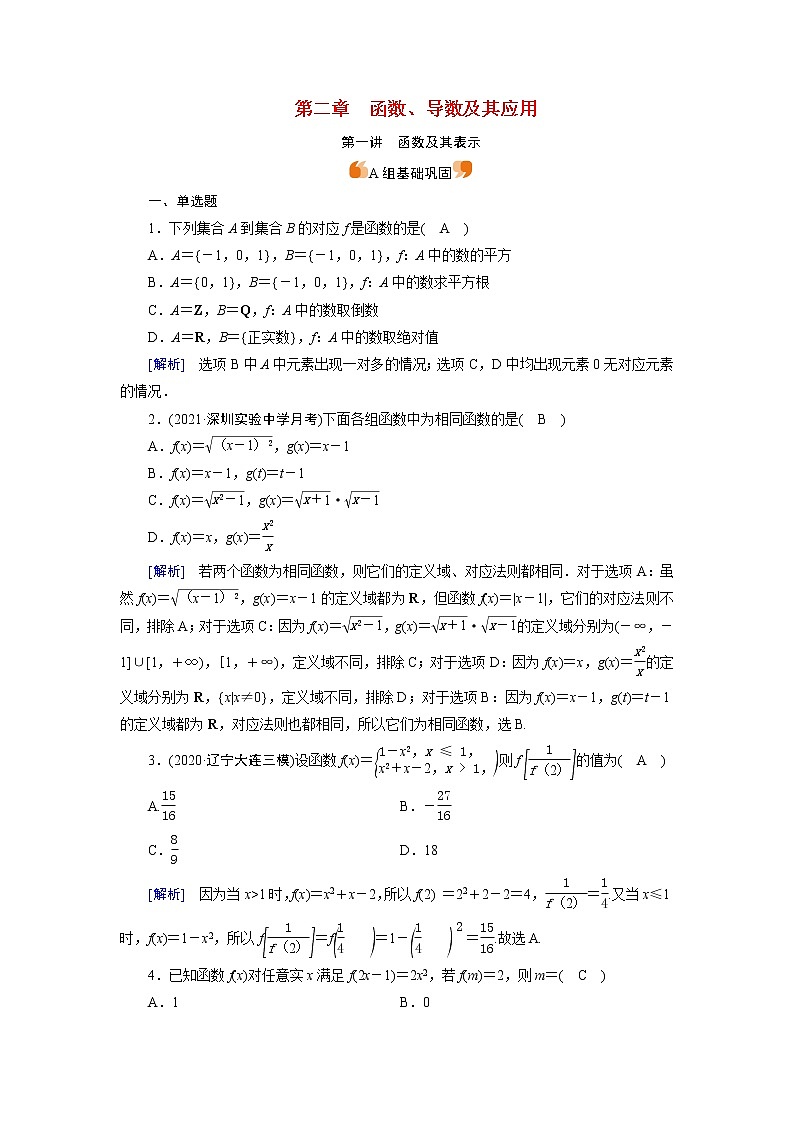 第二章　函数、导数及其应用
第一讲　函数及其表示
A 组基础巩固
一、单选题
1．下列集合 A 到集合 B 的对应 f 是函数的是(　A　)
A．A＝{－1，0，1}，B＝{－1，0，1}，f：A 中的数的平方
B．A＝{0，1}，B＝{－1，0，1}，f：A 中的数求平方根
C．A＝Z，B＝Q，f：A 中的数取倒数
D．A＝R，B＝{正实数}，f：A 中的数取绝对值
[解析]　选项 B 中 A 中元素出现一对多的情况；选项 C，D 中均出现元素 0 无对应元素
的情况．
2．(2021·深圳实验中学月考)下面各组函数中为相同函数的是(　B　)
A．f(x)＝√（x－1）²，g(x)＝x－1
B．f(x)＝x－1，g(t)＝t－1
C．f(x)＝√x²－1，g(x)＝√x＋1·√x－1
D．f(x)＝x，g(x)＝x²/x
[解析]　若两个函数为相同函数，则它们的定义域、对应法则都相同．对于选项 A：虽
然 f(x)＝√（x－1）²，g(x)＝x－1 的定义域都为 R，但函数 f(x)＝|x－1|，它们的对应法则不
同，排除 A；对于选项 C：因为 f(x)＝√x²－1，g(x)＝√x＋1·√x－1的定义域分别为(－∞，－
1]∪[1，＋∞)，[1，＋∞)，定义域不同，排除 C；对于选项 D：因为 f(x)＝x，g(x)＝x²/x的定
义域分别为 R，{x|x≠0}，定义域不同，排除 D；对于选项 B：因为 f(x)＝x－1，g(t)＝t－1
的定义域都为 R，对应法则也都相同，所以它们为相同函数，选 B.
3．(2020·辽宁大连三模)设函数 f(x)＝{1－x²，x ≤ 1，x²＋x－2，x > 1，)则 f[1/f（2）]的值为(　A　)
A.15/16　B．－27/16
C．8/9　D．18
[解析]　因为当 x>1 时，f(x)＝x²＋x－2，所以 f(2) ＝2²＋2－2＝4，1/f（2）＝1/4.又当 x≤1
时，f(x)＝1－x²，所以 f[1/f（2）]＝f(1/4)＝1－(1/4)²＝15/16.故选 A.
4．已知函数 f(x)对任意实 x 满足 f(2x－1)＝2x²，若 f(m)＝2，则 m＝(　C　)
A．1　B．0